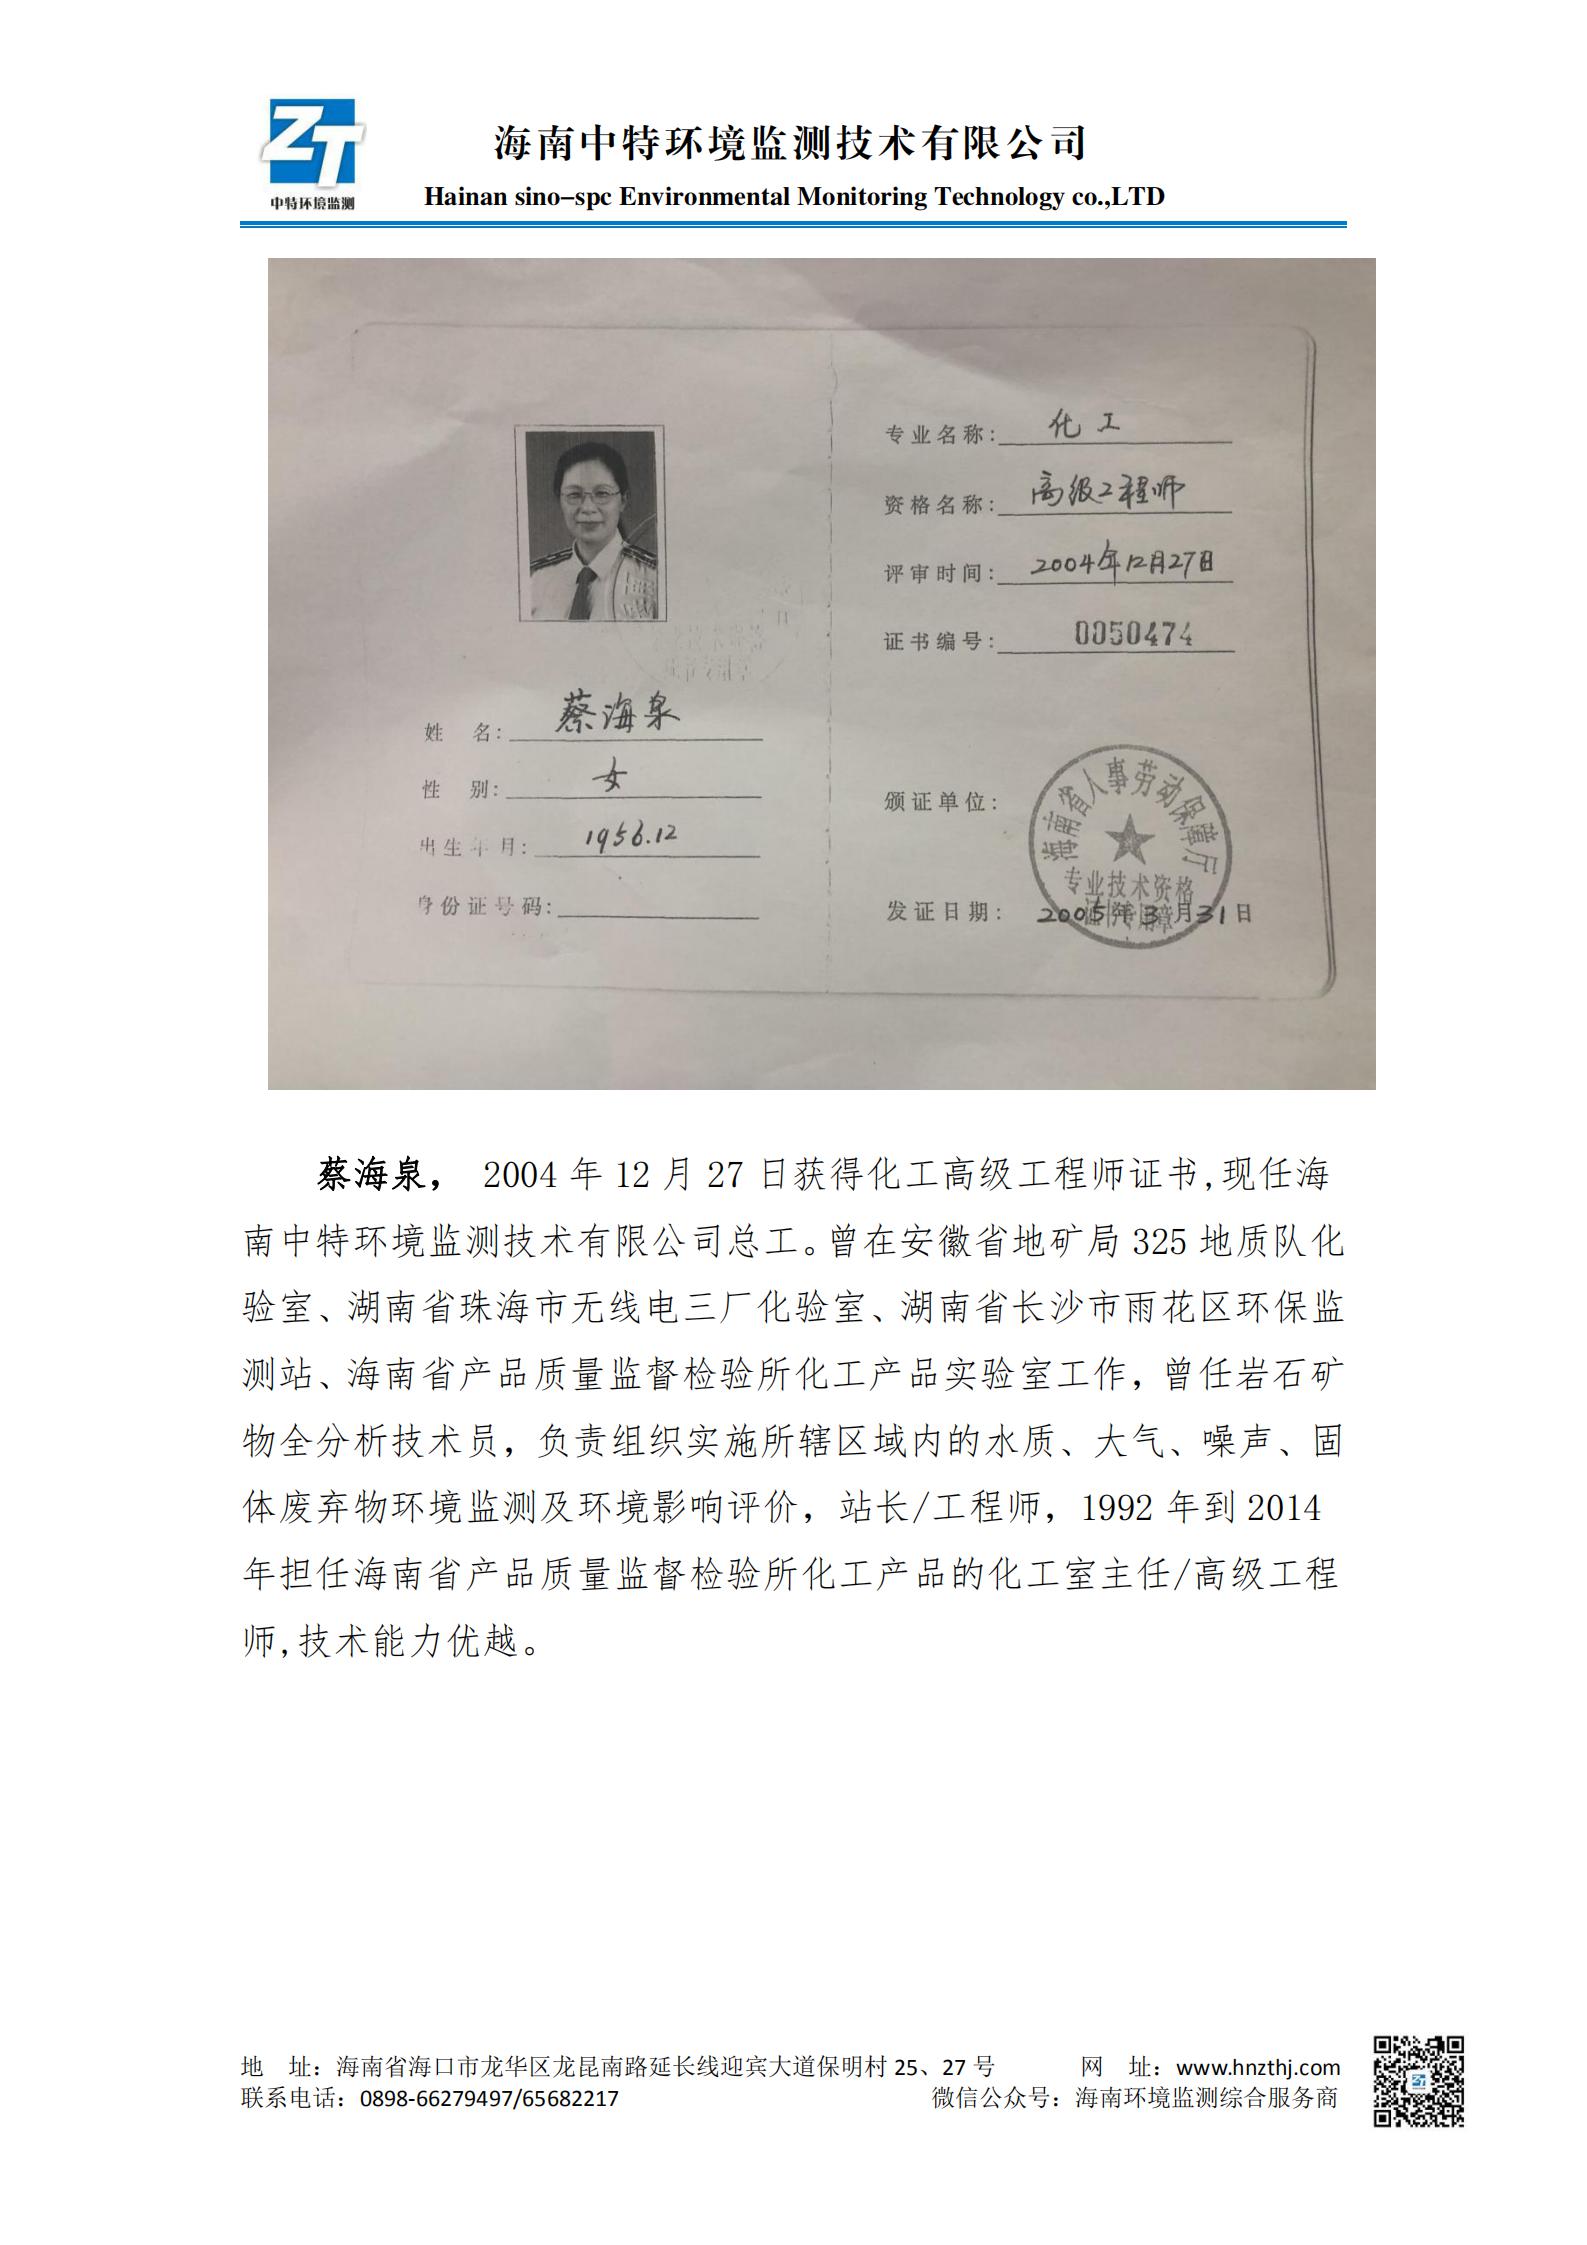 ZT
中特环境监测
海南中特环境监测技术有限公司
Hainan sino-spc Environmental Monitoring Technology co.,LTD
姓 名：蔡海泉
性 别：女
出生年月：1956.12
身份证号码：
专业名称：化工
资格名称：高级工程师
评审时间：2004年12月27日
证书编号：0050474
颁证单位：
海南省人事劳动保障厅
专业技术资格
证书专用章
发证日期：2005年3月31日
蔡海泉， 2004 年 12 月 27 日获得化工高级工程师证书,现任海
南中特环境监测技术有限公司总工。曾在安徽省地矿局 325 地质队化
验室、湖南省珠海市无线电三厂化验室、湖南省长沙市雨花区环保监
测站、海南省产品质量监督检验所化工产品实验室工作，曾任岩石矿
物全分析技术员，负责组织实施所辖区域内的水质、大气、噪声、固
体废弃物环境监测及环境影响评价，站长/工程师，1992 年到 2014
年担任海南省产品质量监督检验所化工产品的化工室主任/高级工程
师,技术能力优越。
地 址：海南省海口市龙华区龙昆南路延长线迎宾大道保明村 25、27 号 网 址：www.hnzthj.com
联系电话：0898-66279497/65682217 微信公众号：海南环境监测综合服务商